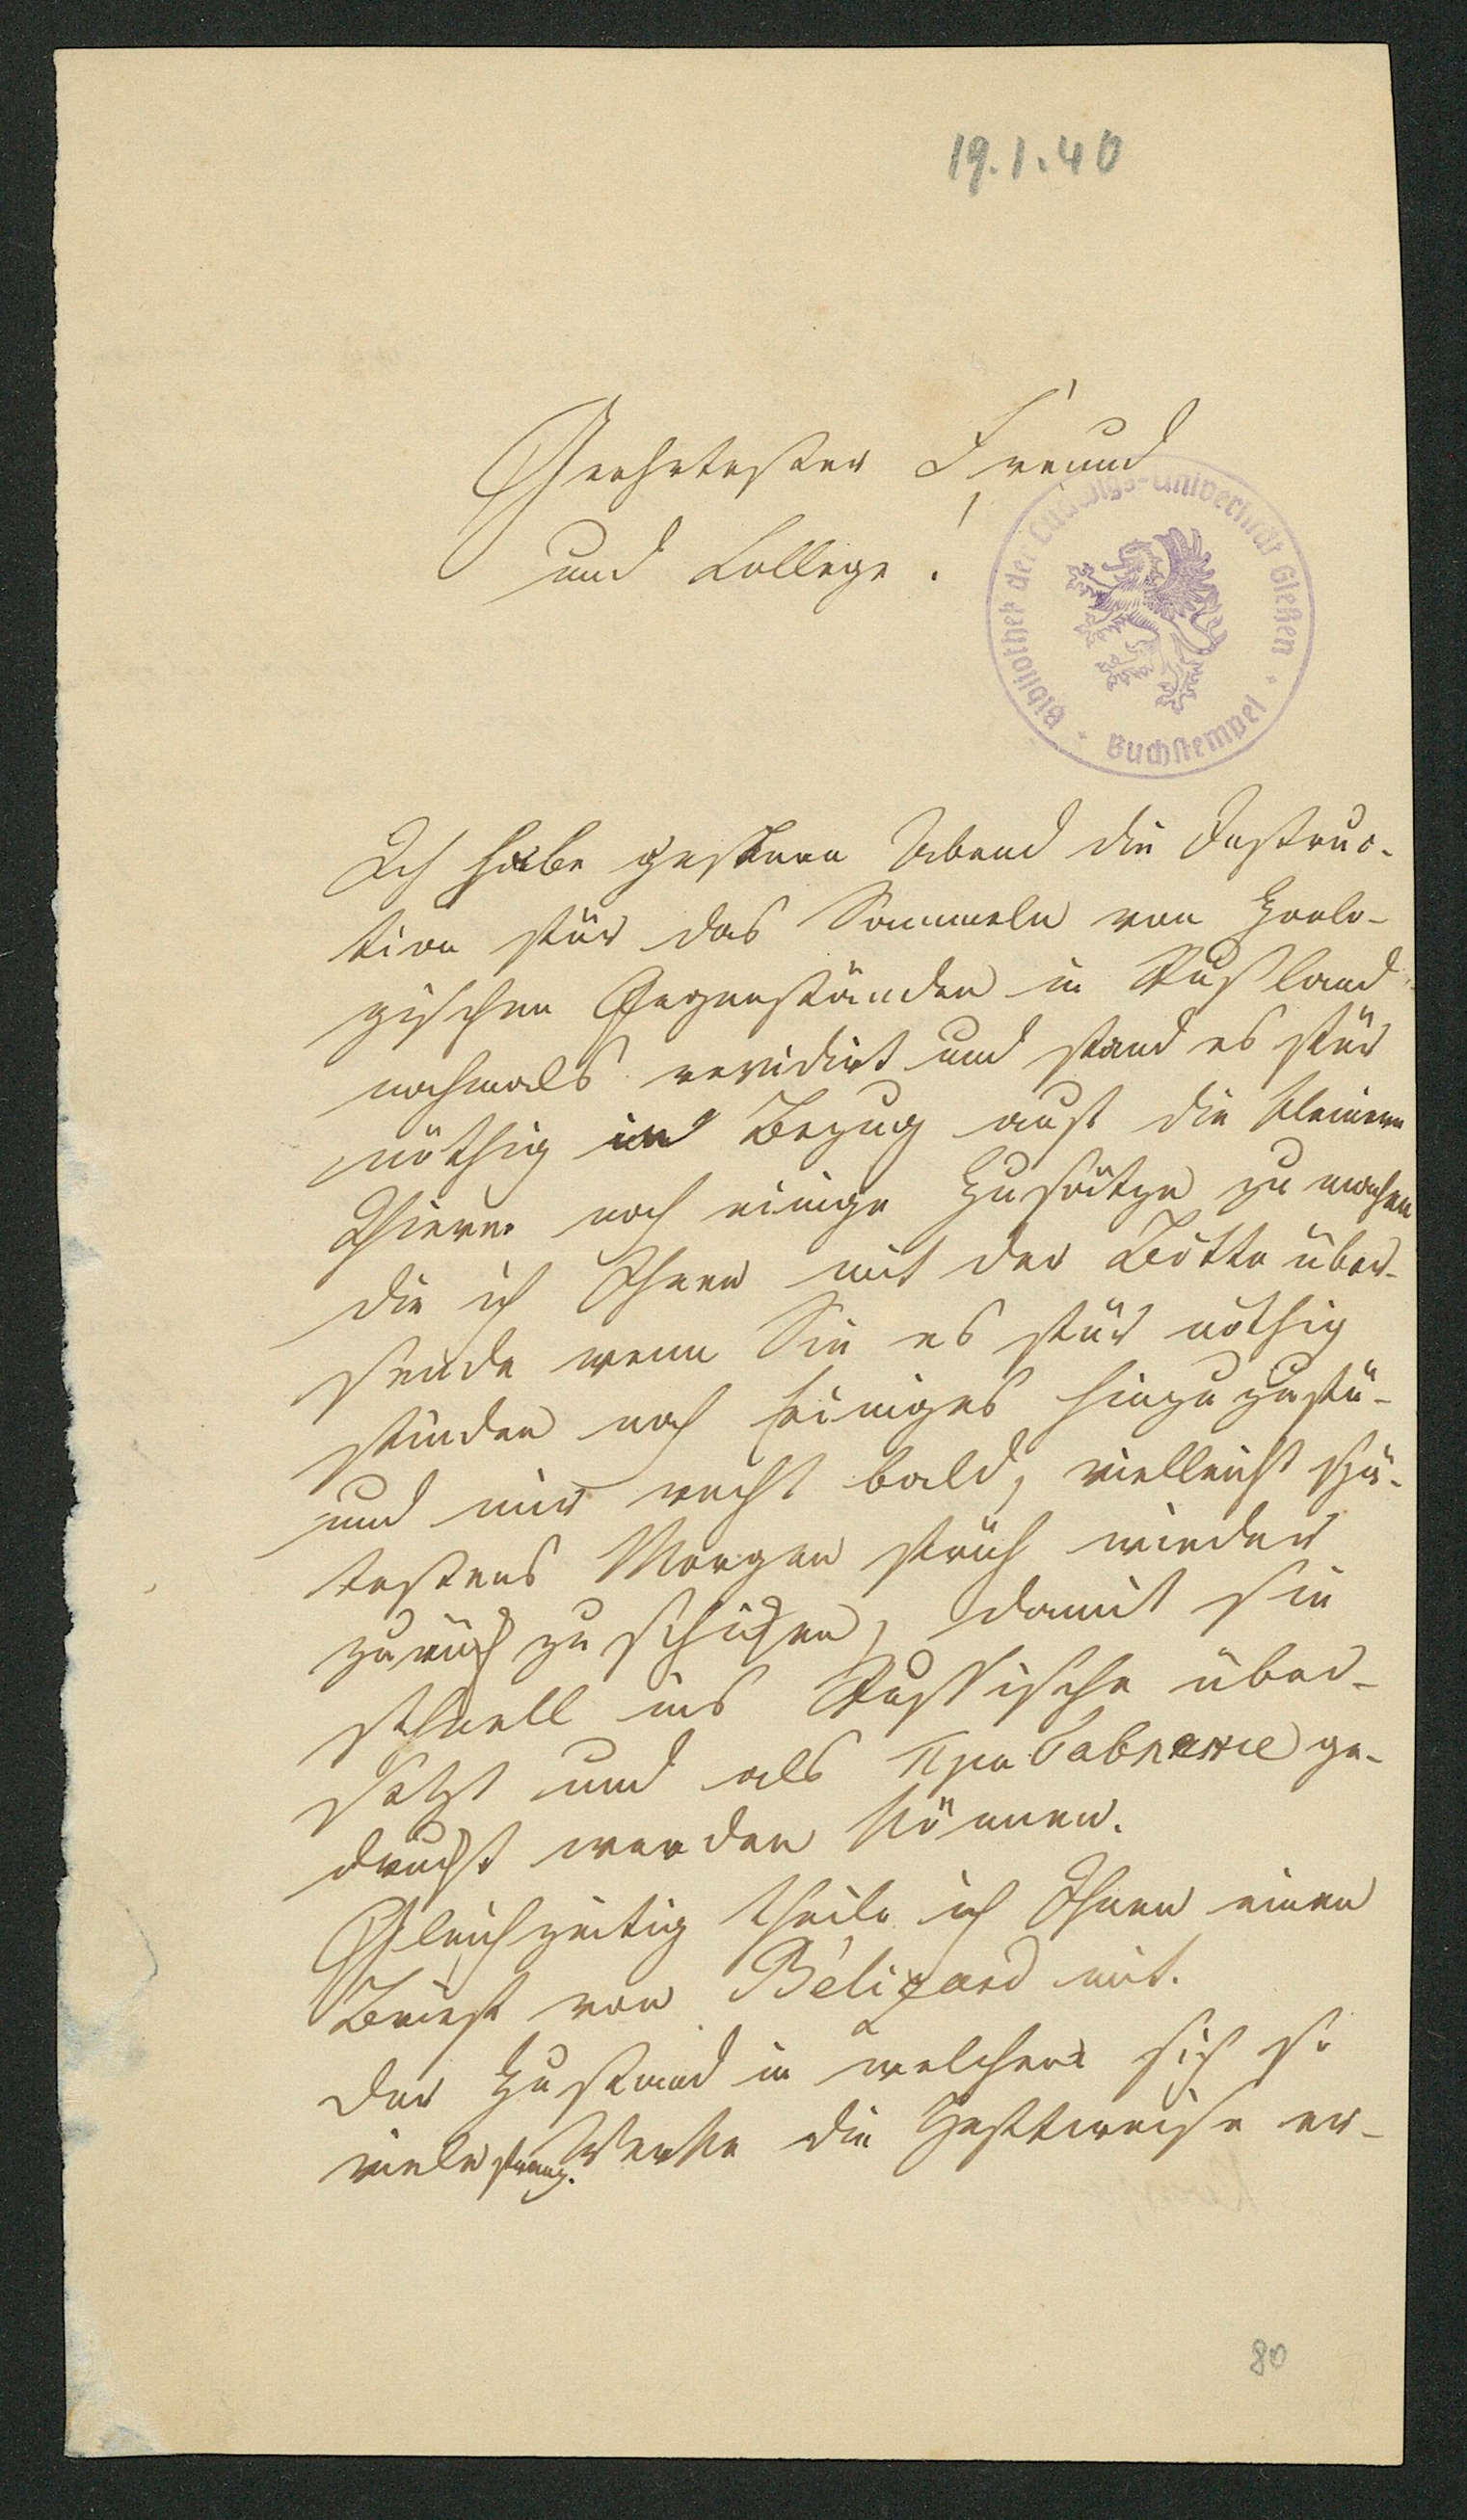 19.1.40
Geehrtester Freund
und College!
Bibliothek der Ludwigs-Universität Gießen
Buchstempel
Ich habe gestern Abend die Instruc-
tion für das Sammeln von Zoolo-
gischen Gegenständen in Rußland
nochmals revidirt und fand es für
nöthig in Bezug auf die kleinern
Thiere noch einige Zusätze zu machen
die ich Ihnen mit der Bitte über-
sende wenn Sie es für nöthig
finden noch Einiges hinzuzufü-
und mir recht bald, vielleicht spä-
testens Morgen früh wieder
zurück zu schicken, damit sie
schnell ins Russische über-
setzt und als Прибавление ge-
druckt werden können.
Gleichzeitig theile ich Ihnen einen
Brief von Bélizard mit.
Der Zustand in welchem sich so
viele franz. Werke die Heftweise er-
80